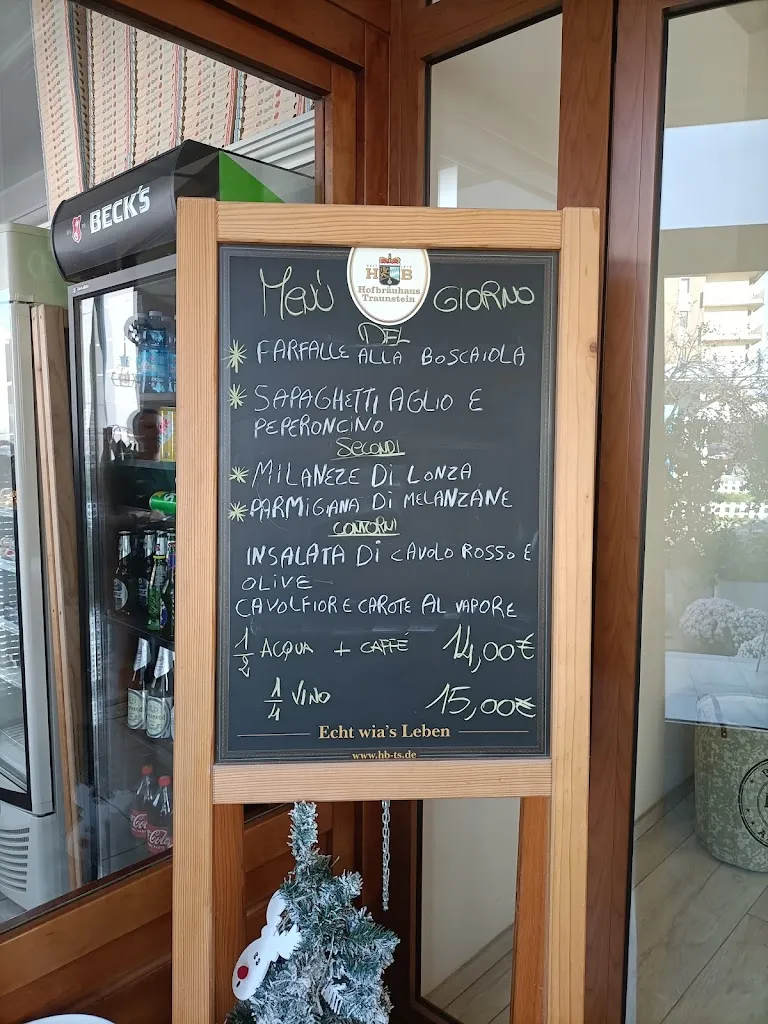 BECK'S
H B
Hofbräuhaus
Traunstein
MENÙ GIORNO
DEL
FARFALLE ALLA BOSCAIOLA
SAPAGHETTI AGLIO E
PEPERONCINO
SECONDI
MILANEZE DI LONZA
PARMIGIANA DI MELANZANE
CONTORNI
INSALATA DI CAVOLO ROSSO E
OLIVE
CAVOLFIOR E CAROTE AL VAPORE
1/2 ACQUA + CAFFÉ 14,00€
1/4 VINO 15,00€
Echt wia's Leben
www.hb-ts.de